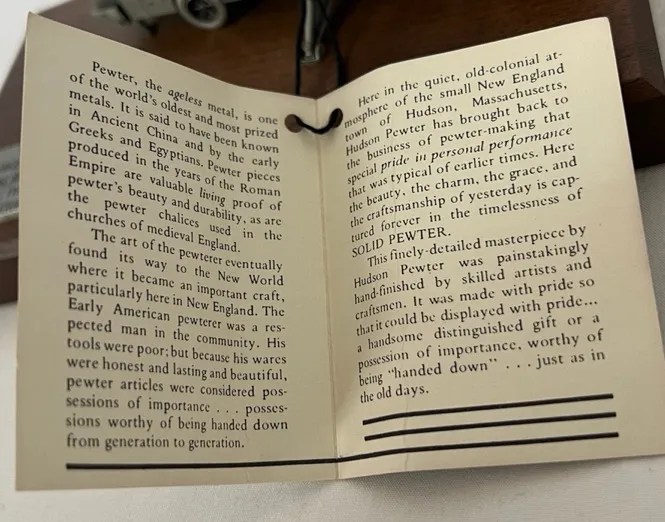 Pewter, the ageless metal, is one
of the world's oldest and most prized
metals. It is said to have been known
in Ancient China and by the early
Greeks and Egyptians. Pewter pieces
produced in the years of the Roman
Empire are valuable living proof of
pewter's beauty and durability, as are
the pewter chalices used in the
churches of medieval England.
The art of the pewterer eventually
found its way to the New World
where it became an important craft,
particularly here in New England. The
Early American pewterer was a res-
pected man in the community. His
tools were poor; but because his wares
were honest and lasting and beautiful,
pewter articles were considered pos-
sessions of importance . . . posses-
sions worthy of being handed down
from generation to generation.
Here in the quiet, old-colonial at-
mosphere of the small New England
town of Hudson, Massachusetts,
Hudson Pewter has brought back to
the business of pewter-making that
special pride in personal performance
that was typical of earlier times. Here
the beauty, the charm, the grace, and
the craftsmanship of yesterday is cap-
tured forever in the timelessness of
SOLID PEWTER.
This finely-detailed masterpiece by
Hudson Pewter was painstakingly
hand-finished by skilled artists and
craftsmen. It was made with pride so
that it could be displayed with pride...
a handsome distinguished gift or a
possession of importance, worthy of
being "handed down" . . . just as in
the old days.